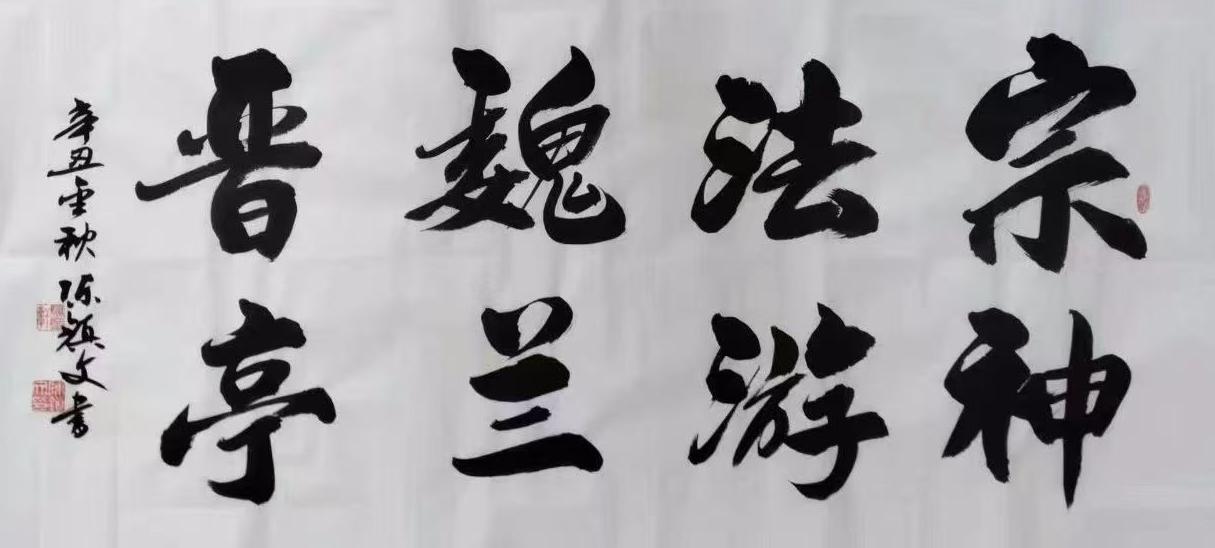 宗法魏晋
神游兰亭
辛丑金秋 陈文书